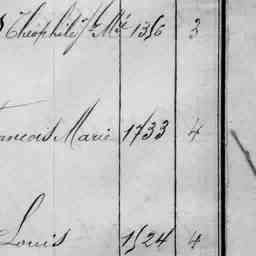 Théophile J. Mie 1356 3
François Marie 1733 4
Louis 1524 4